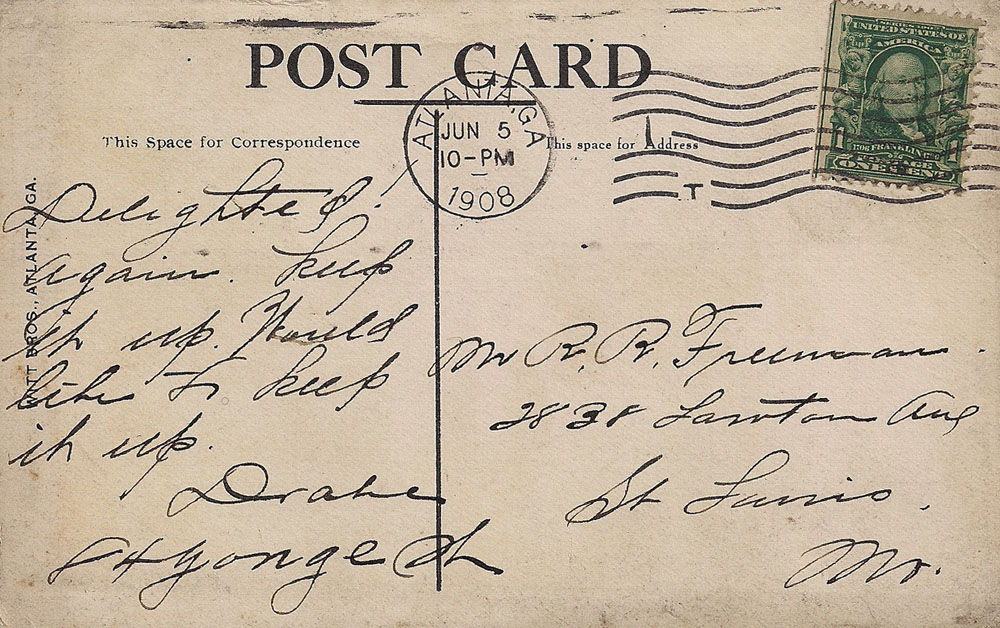 POST CARD
SERIES 1902
UNITED STATES OF
AMERICA
1706 FRANKLIN 1790
POSTAGE
1 ONE CENT 1
ATLANTA, GA
JUN 5
10-PM
1908
T
This Space for Correspondence
This space for Address
WITT BROS., ATLANTA, GA.
Delighted!
again. Keep
it up. Would
like to keep
it up.
Drake
84 Yonge St
Mr R. R. Freeman.
2838 Lawton Ave
St Louis.
Mo.